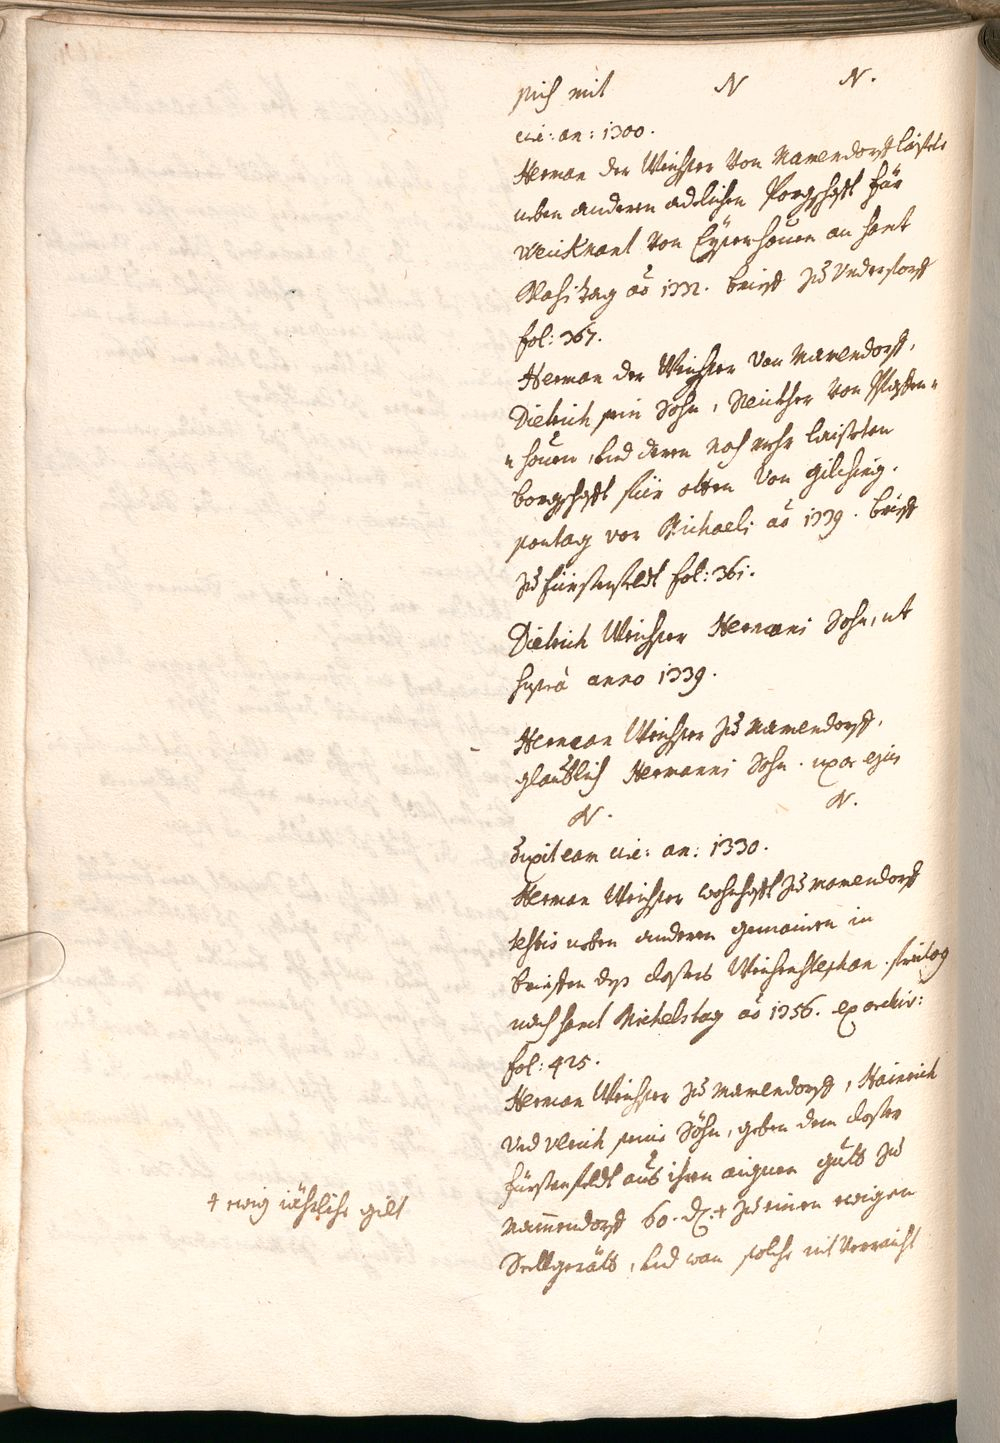 sich mit N N.
cic: an: 1300.
Herman der Weichser von Mamendorff laistete
neben anderen adelichen Porgschafft für
Weicknant von Eysenhouen an sant
Blasi tag ao 1332. brieff zu Understorff
fol: 367.
Herman der Weichser von Mamendorff,
Dietrich sein Sohn, von
houen, und deren noch mehr laisteten
borgschafft für otten von gilching.
sontag vor Michaeli ao 1339. brieff
zu fürstenfeldt fol: 361.
Dietrich Weichser Hermani Sohn, ut
supra anno 1339.
Herman Weichser zu Mamendorff,
glaublich Hermanni Sohn. uxor eius
N. N.
duxit eam cic: an: 1330.
Herman Weichser wohnhafft zu Mamendorff
testis neben anderen gemainen in
brieffen dess closters Weichenstephan. freitag
nach sant Michelstag ao 1356. ex archiv:
fol: 425.
Herman Weichser zu Mamendorff, Hainrich
und Ulrich seine Söhn, geben dem closter
fürstenfeldt aus ihren aignen guts zu
Mammendorff 60. d. + zu einen ewigen
Seelgeräts, und wan solche nit verraicht
+ ewig iährliche gilt